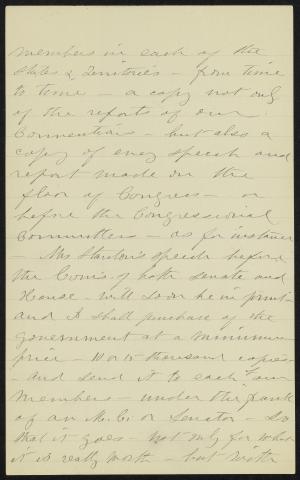 members in each of the
States & Territories - from time
to time - a copy not only
of the reports of our
Conventions - but also a
copy of every speech and
report made on the
floor of Congress - or
before the Congressional
Committees - as for instance
- Mrs Stanton's speech before
the Com's of both Senate and
House - will soon be in print -
and I shall purchase of the
government at a minimum
price - 10 or 15 thousand copies -
- and send it to each of our
members - under the frank
of an M.C. or Senator - so
that it goes - not only for what
it is really worth - but with